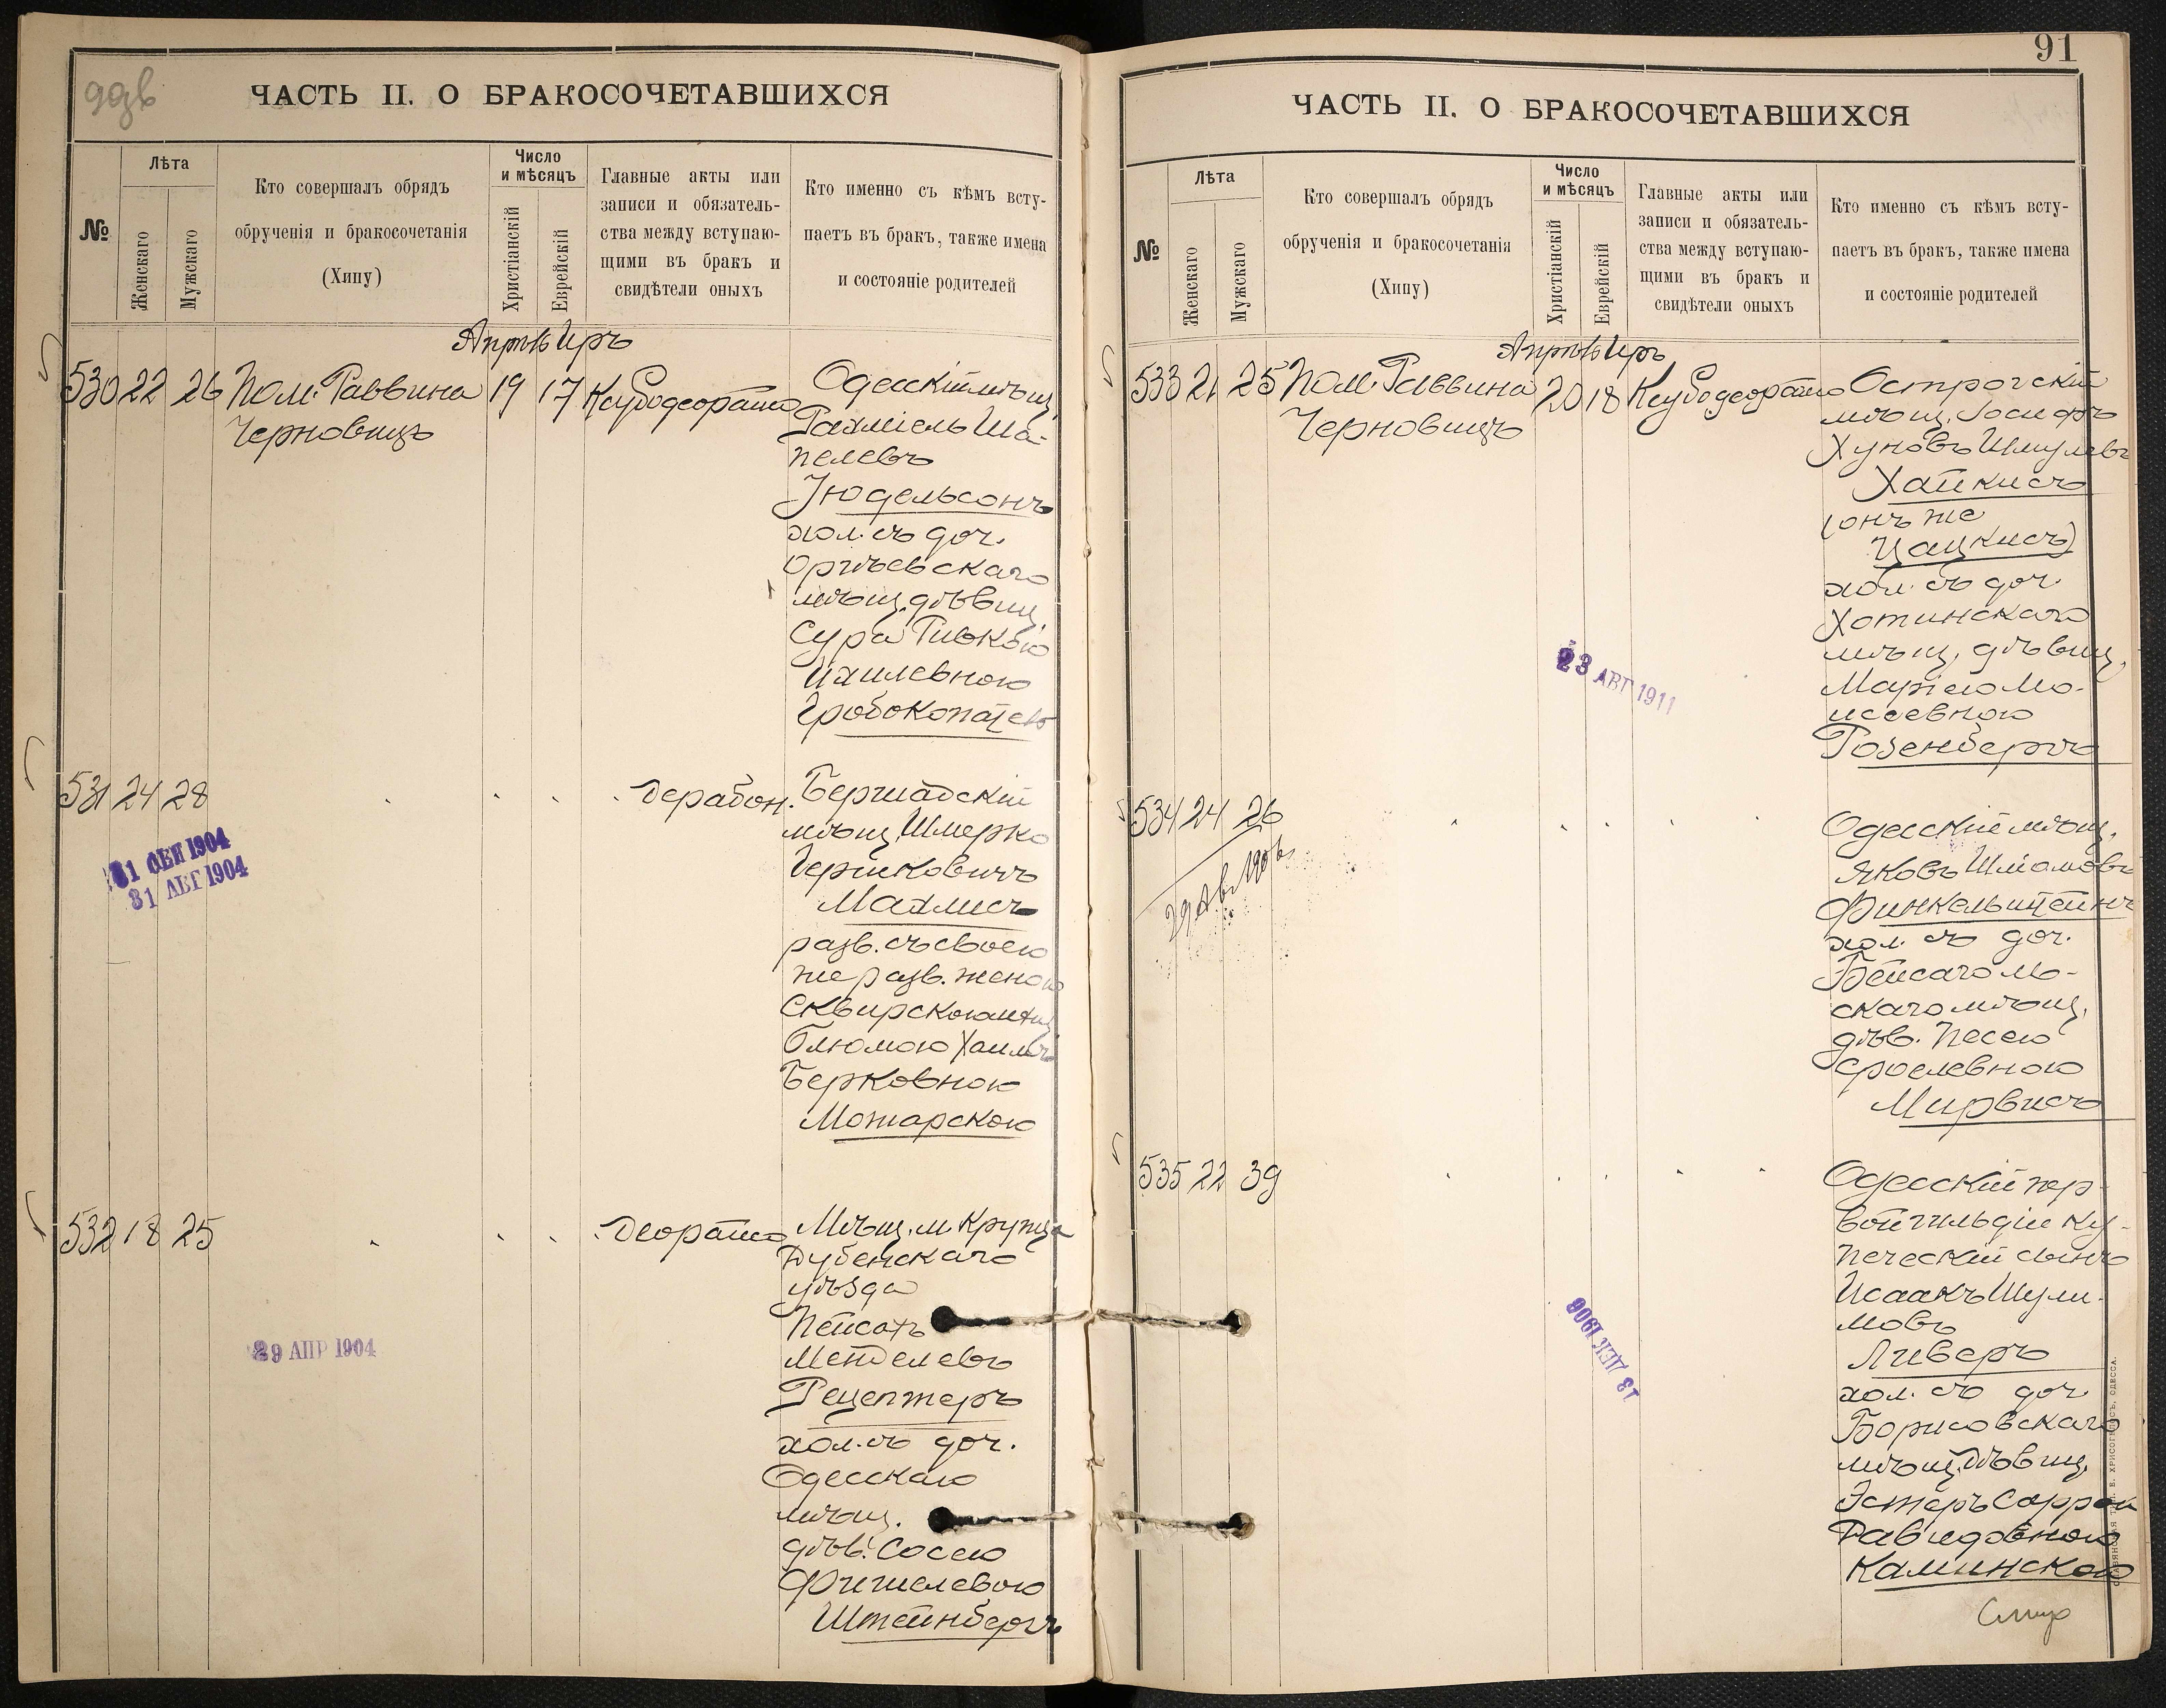 ЧАСТЬ II. О БРАКОСОЧЕТАВШИХСЯ
№
Лѣта
Женскаго
Мужскаго
Кто совершалъ обрядъ
обрученія и бракосочетанія
(Хипу)
Число
и мѣсяцъ
Христіанскій
Еврейскій
Главные акты или
записи и обязатель-
ства между вступаю-
щими въ бракъ и
свидѣтели оныхъ
Кто именно съ кѣмъ всту-
паетъ въ бракъ, также имена
и состояніе родителей
530 22 26 Пом. Раввина 19 17
Черновицъ
Одесскій мѣщ.
Рахміель Ша-
пелевъ
Юдельсонъ
хол. съ доч.
Оргѣевскаго
мѣщ. дѣвиц.
Сура Ривкою
Ихилевною
Гробокопатель
531 24 28
31 АВГ 1904
Бершадскій
мѣщ. Шмерко
Гершковичъ
Махлисъ
разв. съ своею
же разв. женою
Сквирскою мѣщ.
Блюмою
Берковною
Можарскою
532 18 25
29 АПР 1904
Мѣщ. м.
Дубенскаго
уѣзда
Пейсахъ
Менделевъ
Рецептеръ
хол. съ доч.
Одесскаго
мѣщ.
дѣв. Сосею
Фишелевою
Штейнбергъ
91
ЧАСТЬ II. О БРАКОСОЧЕТАВШИХСЯ
№
Лѣта
Женскаго
Мужскаго
Кто совершалъ обрядъ
обрученія и бракосочетанія
(Хипу)
Число
и мѣсяцъ
Христіанскій
Еврейскій
Главные акты или
записи и обязатель-
ства между вступаю-
щими въ бракъ и
свидѣтели оныхъ
Кто именно съ кѣмъ всту-
паетъ въ бракъ, также имена
и состояніе родителей
533 21 25 Пом. Раввина 20 18
Черновицъ
Острогскій
мѣщ. Іосифъ
Хуновъ Шмулевъ
Хайкисъ
(онъ же
Цацкисъ)
хол. съ доч.
Хотинскаго
мѣщ. дѣвиц.
Маріею Мо-
исеевною
Розенбергъ
23 АВГ 1911
534 24 26
Одесскій мѣщ.
Яковъ Шліомовъ
Финкельштейнъ
хол. съ доч.
Бейсаголь-
скаго мѣщ.
дѣв. Песею
Сроелевною
Мирвисъ
535 22 39
13 ДЕК 1906
Одесскій пер-
вой гильдіи ку-
печескій сынъ
Исаакъ Шули-
мовъ
Ливеръ
хол. съ доч.
Борисовскаго
мѣщ. дѣвиц.
Эстеръ Саррою
Давидовною
Каминскою